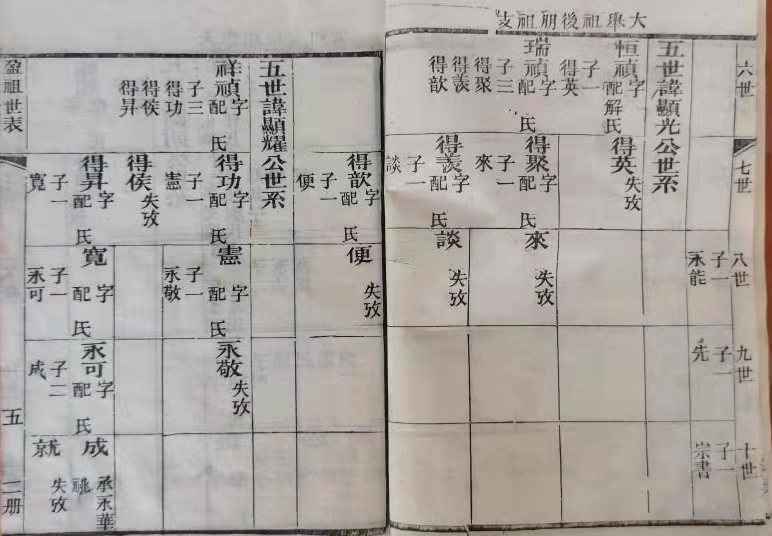 大舉祖後朋祖支
六世
七世
八世
九世
十世
子一
永能
子一
先
子一
崇書
五世諱顯光公世系
恒禎字
配解氏
子一
得英
得英
失攷
瑞禎字
配 氏
子三
得聚
得羨
得歆
得聚字
配 氏
子一
來
來
失攷
得羨字
配 氏
子一
談
談
失攷
得歆字
配 氏
子一
便
便
失攷
五世諱顯耀公世系
祥禎字
配 氏
子三
得功
得侯
得昇
得功字
配 氏
子一
憲
憲 字
配 氏
子一
永敬
永敬
失攷
得侯
失攷
得昇字
配 氏
子一
寬
寬 字
配 氏
子一
永可
永可字
配 氏
子二
成
成
承永華
祧
就
失攷
盈祖世表
五
二册